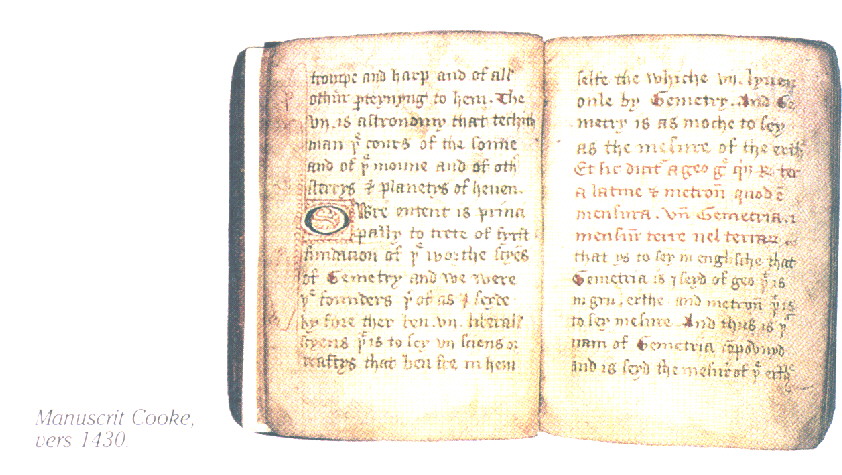 trompe and harp and of all
othur pteynyng to hem. The
vn. is astronomy that techith
man yͤ cours of the sonne
and of yͤ moune and of oth
sterrys & planetys of heuen.
Owre entent is princi
pally to trete of fyrst
fundacion of yͤ worthe scyēs
of Gemetry and we were
yͤ founders
by fore ther ben. vn. liberall
scyens yͭ is to sey vn sciens or
craftys that ben fre in hem
selfe the whiche vn. lyuen
only by Gemetry. And Ge
metry is as moche to sey
as the mesure of the erth
Et sic dicit a geo
a latine & metron quod ē
mensura. Vn Gemetria. i
mensur terre uel terrarum
that ys to sey in englische that
Gemetria is i seyd of geo yͭ is
in gru. erthe and metron yͭ is
to sey mesure. And thus is yͤ
nam of Gemetria cōpovnyd
and is seyd the mesur of yͤ erth
Manuscrit Cooke,
vers 1430.